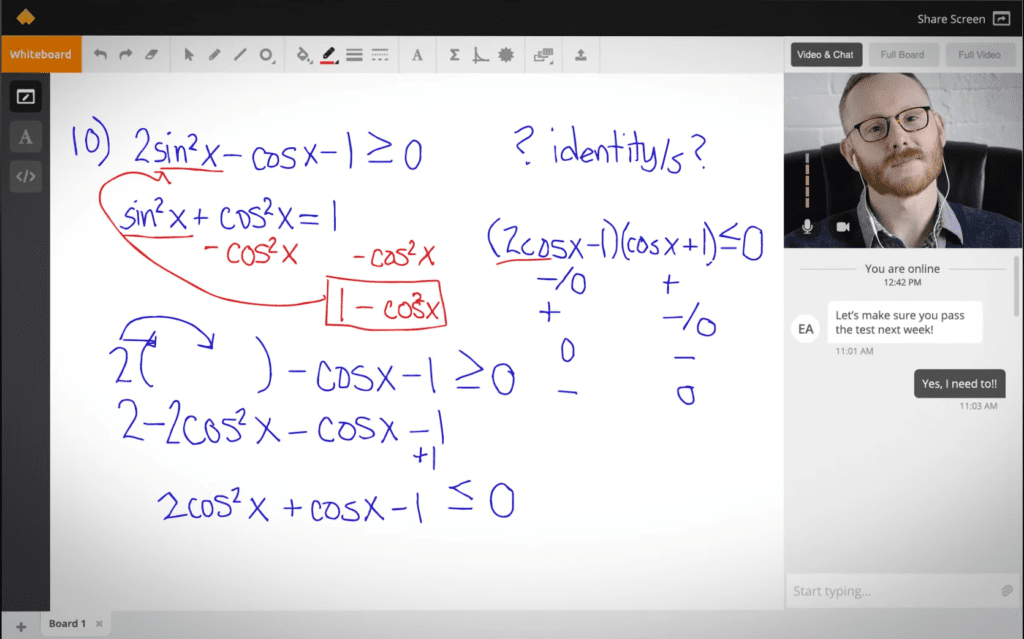 Share Screen
Whiteboard
A
Σ
Video & Chat
Full Board
Full Video
A
</>
10) 2sin²x - cosx - 1 ≥ 0
? identity/s ?
sin²x + cos²x = 1
- cos²x - cos²x
1 - cos²x
(2cosx-1)(cosx+1) ≤ 0
-/0 +
+ -/0
0 -
- 0
2( ) - cosx - 1 ≥ 0
2-2cos²x - cosx - 1
+1
2cos²x + cosx - 1 ≤ 0
You are online
12:42 PM
EA
Let's make sure you pass
the test next week!
11:01 AM
Yes, I need to!!
11:03 AM
Start typing...
+
Board 1 ×